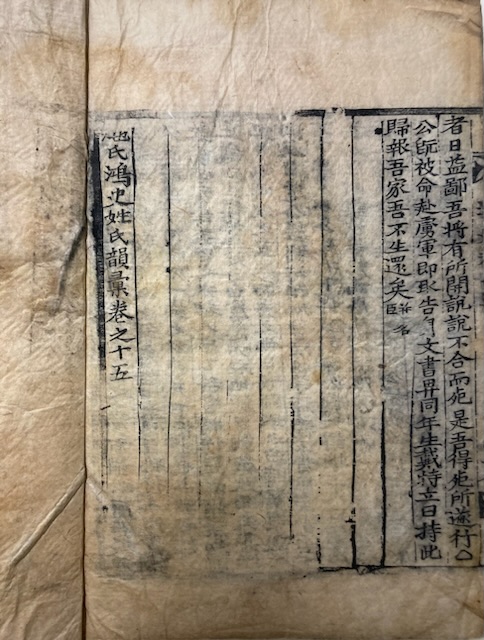 者日益鄙吾將有所開說說不合而死是吾得死所遂行〇
公旣被命赴虜軍即取告身文書畀同年生戴特立曰持此
歸報吾家吾不生還矣
池氏鴻史姓氏韻彙卷之十五